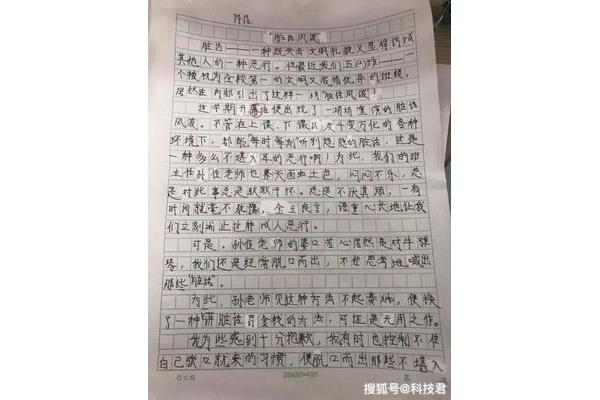 "脏话风波"
脏话——一种既失去文明礼貌又显得污
其他人的一种恶行。但最近我们五(2)班——
个被视为全校第一的文明又成绩优异的班级,
居然在内部引出了这样一场"脏话风波"!
这学期开幕连便出现了一场场重演的脏话
风波。不管在上课、下课以及千变万化的各种
环境下,都能"每时每刻"听到隐隐的脏话,这是
一种多么不堪入耳的恶行啊!为此,我们的班
主任孙佳老师也整天面如土色,闷闷不乐,总
是对此事总是耿耿于怀。总是不厌其烦,一有
时间就毫不犹豫,金玉良言,语重心长地让我
们立刻阻止这种成人恶行。
可是,孙佳老师的婆口苦心居然是对牛弹
琴,我们还是经常脱口而出,不经思考地喊出
那些"脏话"。
为此,孙老师见这种方法不起奏效,便换
了一种讲脏话罚金钱的方法,可还是无用之作。
我为些感到十分抱歉,我有时也控制不住
自己脱口就来的习惯,便脱口而出那些不堪入
20x20=400
搜狐号@科技君